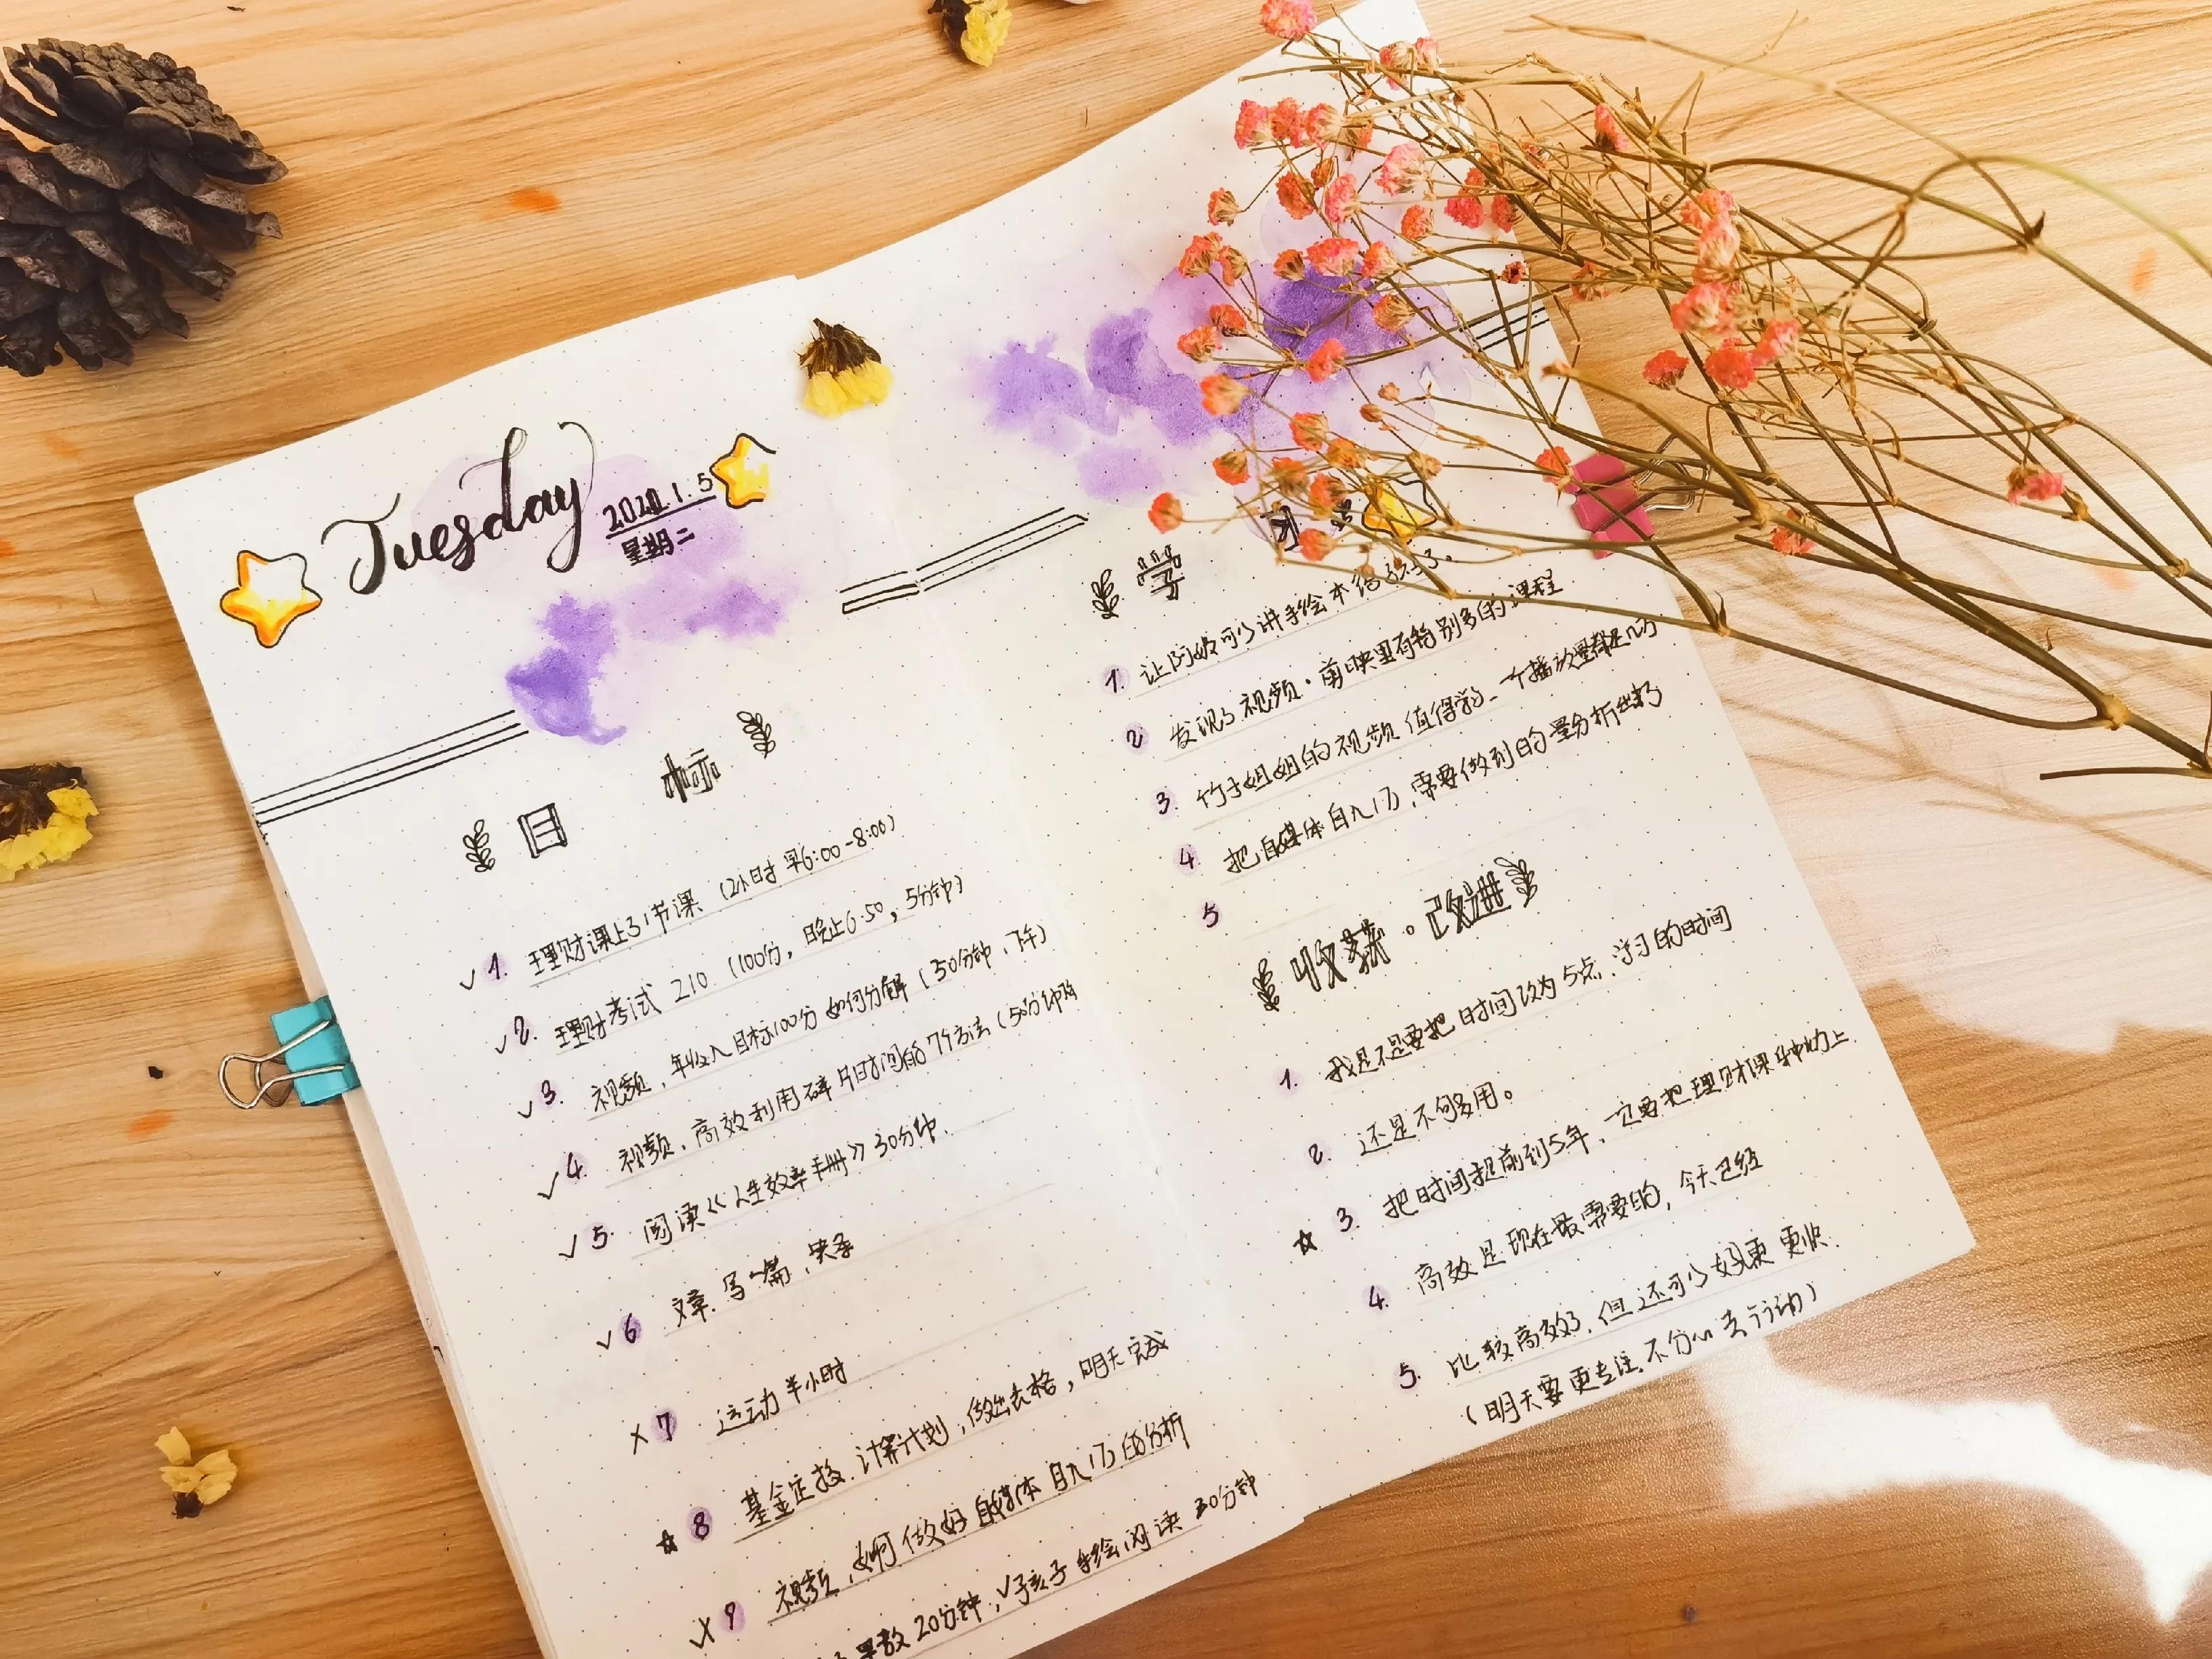 Tuesday
2021.1.5
星期二
目 标
1. 理财课上31节课（2小时 早6:00-8:00）
2. 理财考试 210.（100分，晚上6:50，5分钟）
3. 视频，年收入目标100分 如何分解（30分钟，下午）
4. 视频，高效利用碎片时间的7个方法（50分钟
5. 阅读《人生效率手册》30分钟．
6 文章．写一篇，
7 运动 半小时
8 基金定投．计算计划，做出表格，明天完成
9 视频，如何做好自媒体 月入1万的分析
20分钟，孩子手绘阅读 30分钟
学 习
1. 让阿 可以讲手绘本给
2 发现了视频·剪映里有特别多的课程
3. 竹子姐姐的视频值得学习．一个播放量都是
4 把自媒体月入1万，需要做到的量分析出来了
5
收获·改进
1. 我是不是要把时间改为5点．学习的时间
2. 还是不够多用。
3. 把时间提前到5年，一定要把理财课 上
4. 高效是现在最需要的，今天已经
5. 比较高效了，但还可以 更 更快．
（明天要更专注．不分心去行动）